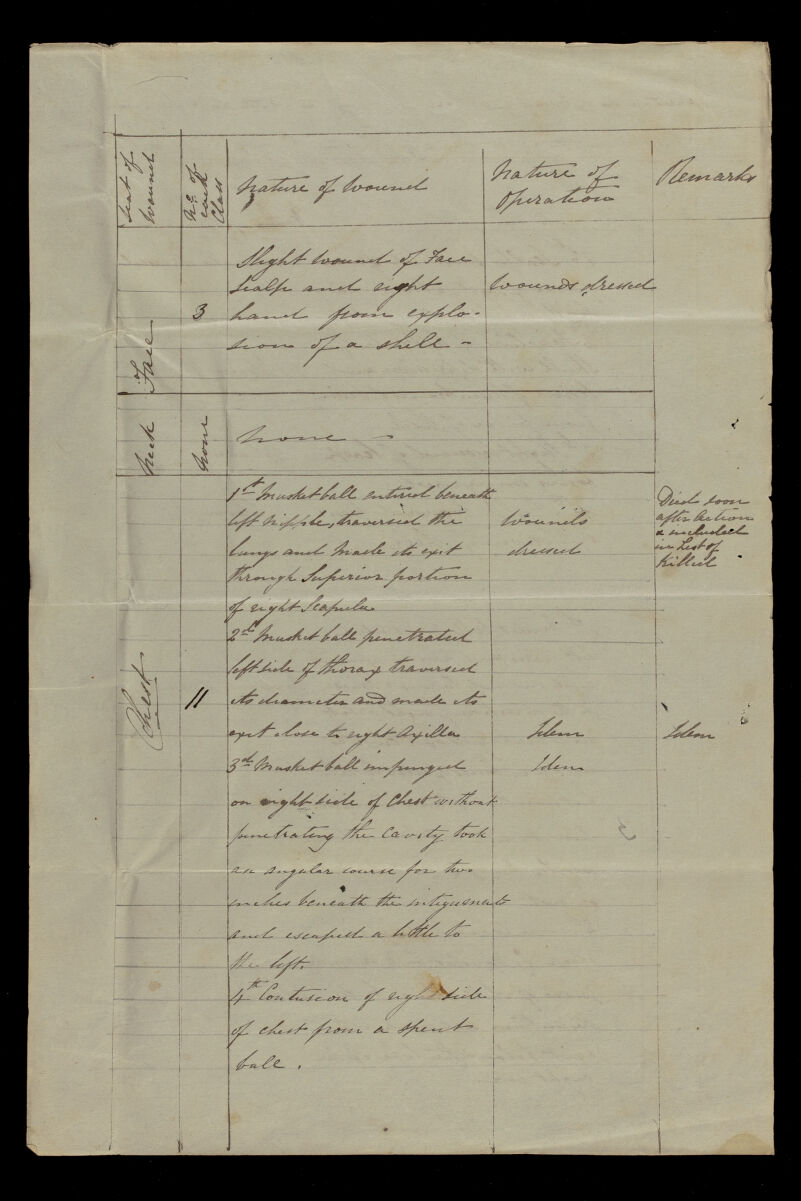 Seat of
Wound
No. of
each
Class
Nature of Wound
Nature of
Operation
Remarks
Face
3
Slight wound of Face
Scalp and right
hand from explo-
sion of a shell -
Wounds dressed
Neck
None
None -
Chest
11
1st Musket ball entered beneath
left nipple, traversed the
lungs and made its exit
through Superior portion
of right Scapula
Wounds
dressed
Died soon
after Action
& included
in List of
Killed
2nd Musket ball penetrated
left side of thorax traversed
its diameter and made its
exit close to right Axilla
Idem
Idem
3rd Musket ball impinged
Idem
on right side of Chest without
penetrating the Cavity took
an angular course for two
inches beneath the integuments
and escaped a little to
the left.
4th Contusion of right side
of chest from a spent
ball.